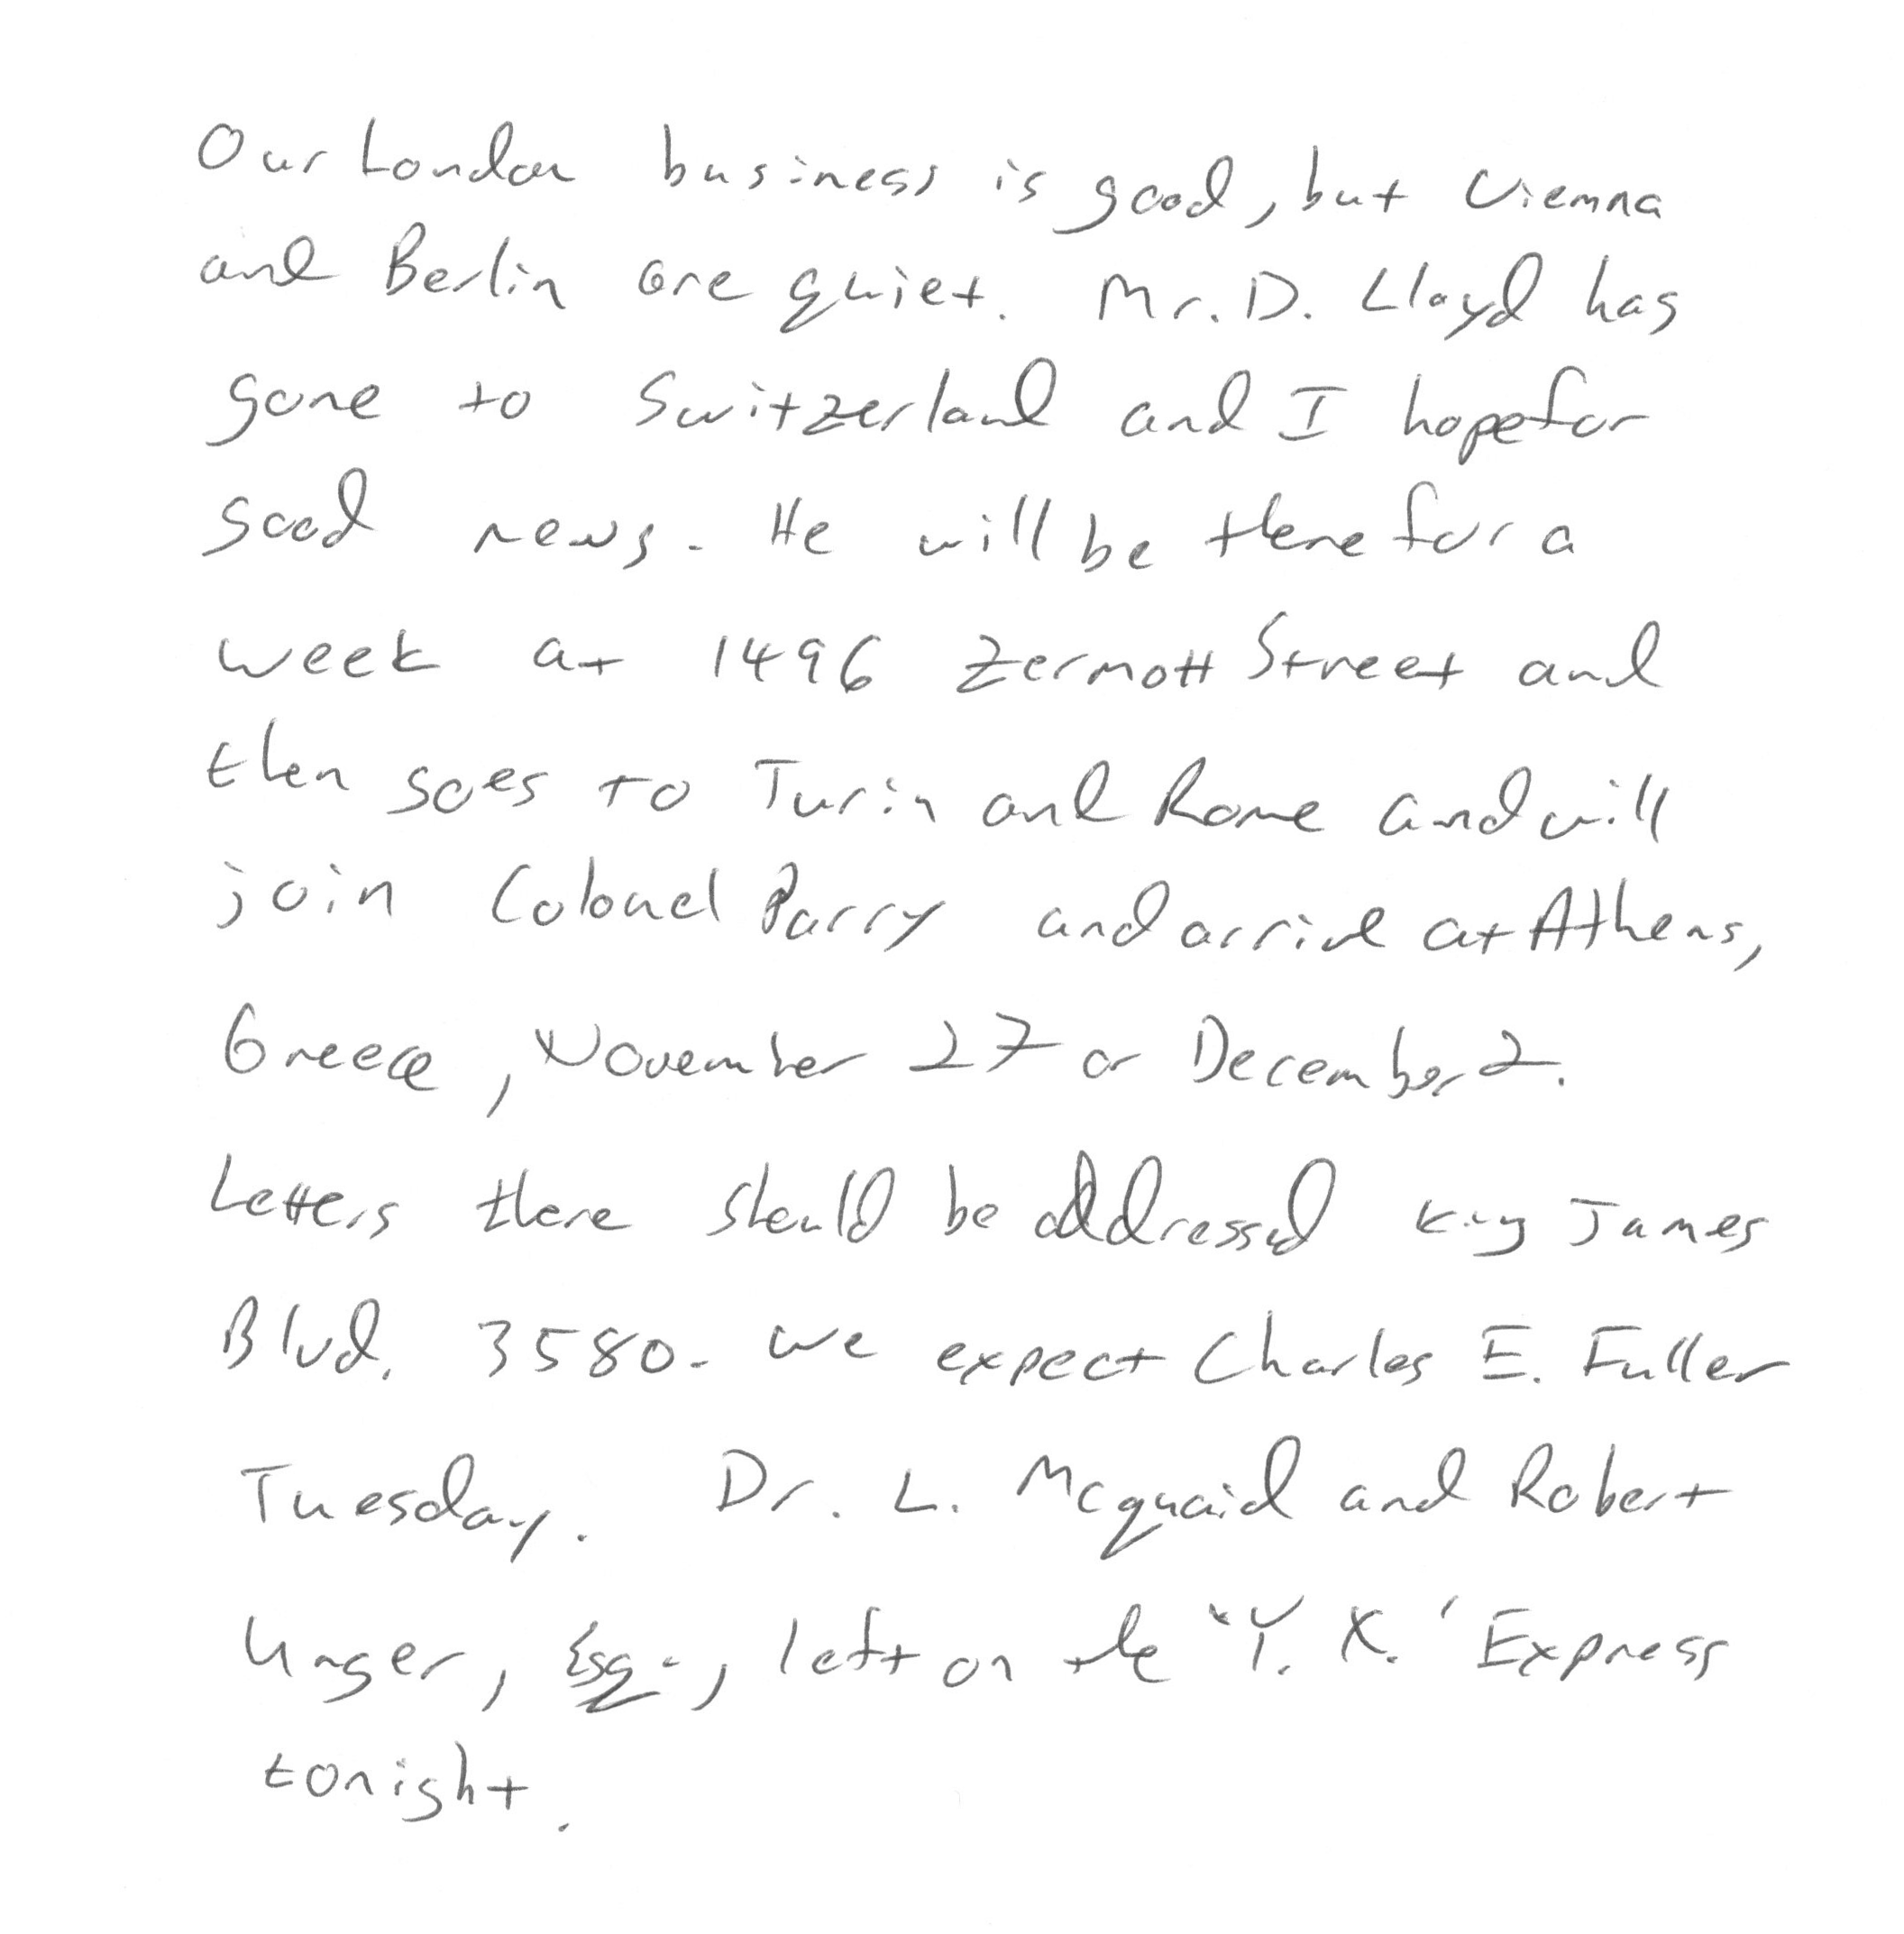 Our London business is good, but Vienna
and Berlin are quiet. Mr. D. Lloyd has
gone to Switzerland and I hope for
good news. He will be there for a
week at 1496 Zermott Street and
then goes to Turin and Rome and will
join Colonel Parry and arrive at Athens,
Greece, November 27 or December 2.
Letters there should be addressed King James
Blvd. 3580. We expect Charles E. Fuller
Tuesday. Dr. L. McQuaid and Robert
Unger, Esq., left on the "Y. X." Express
tonight.